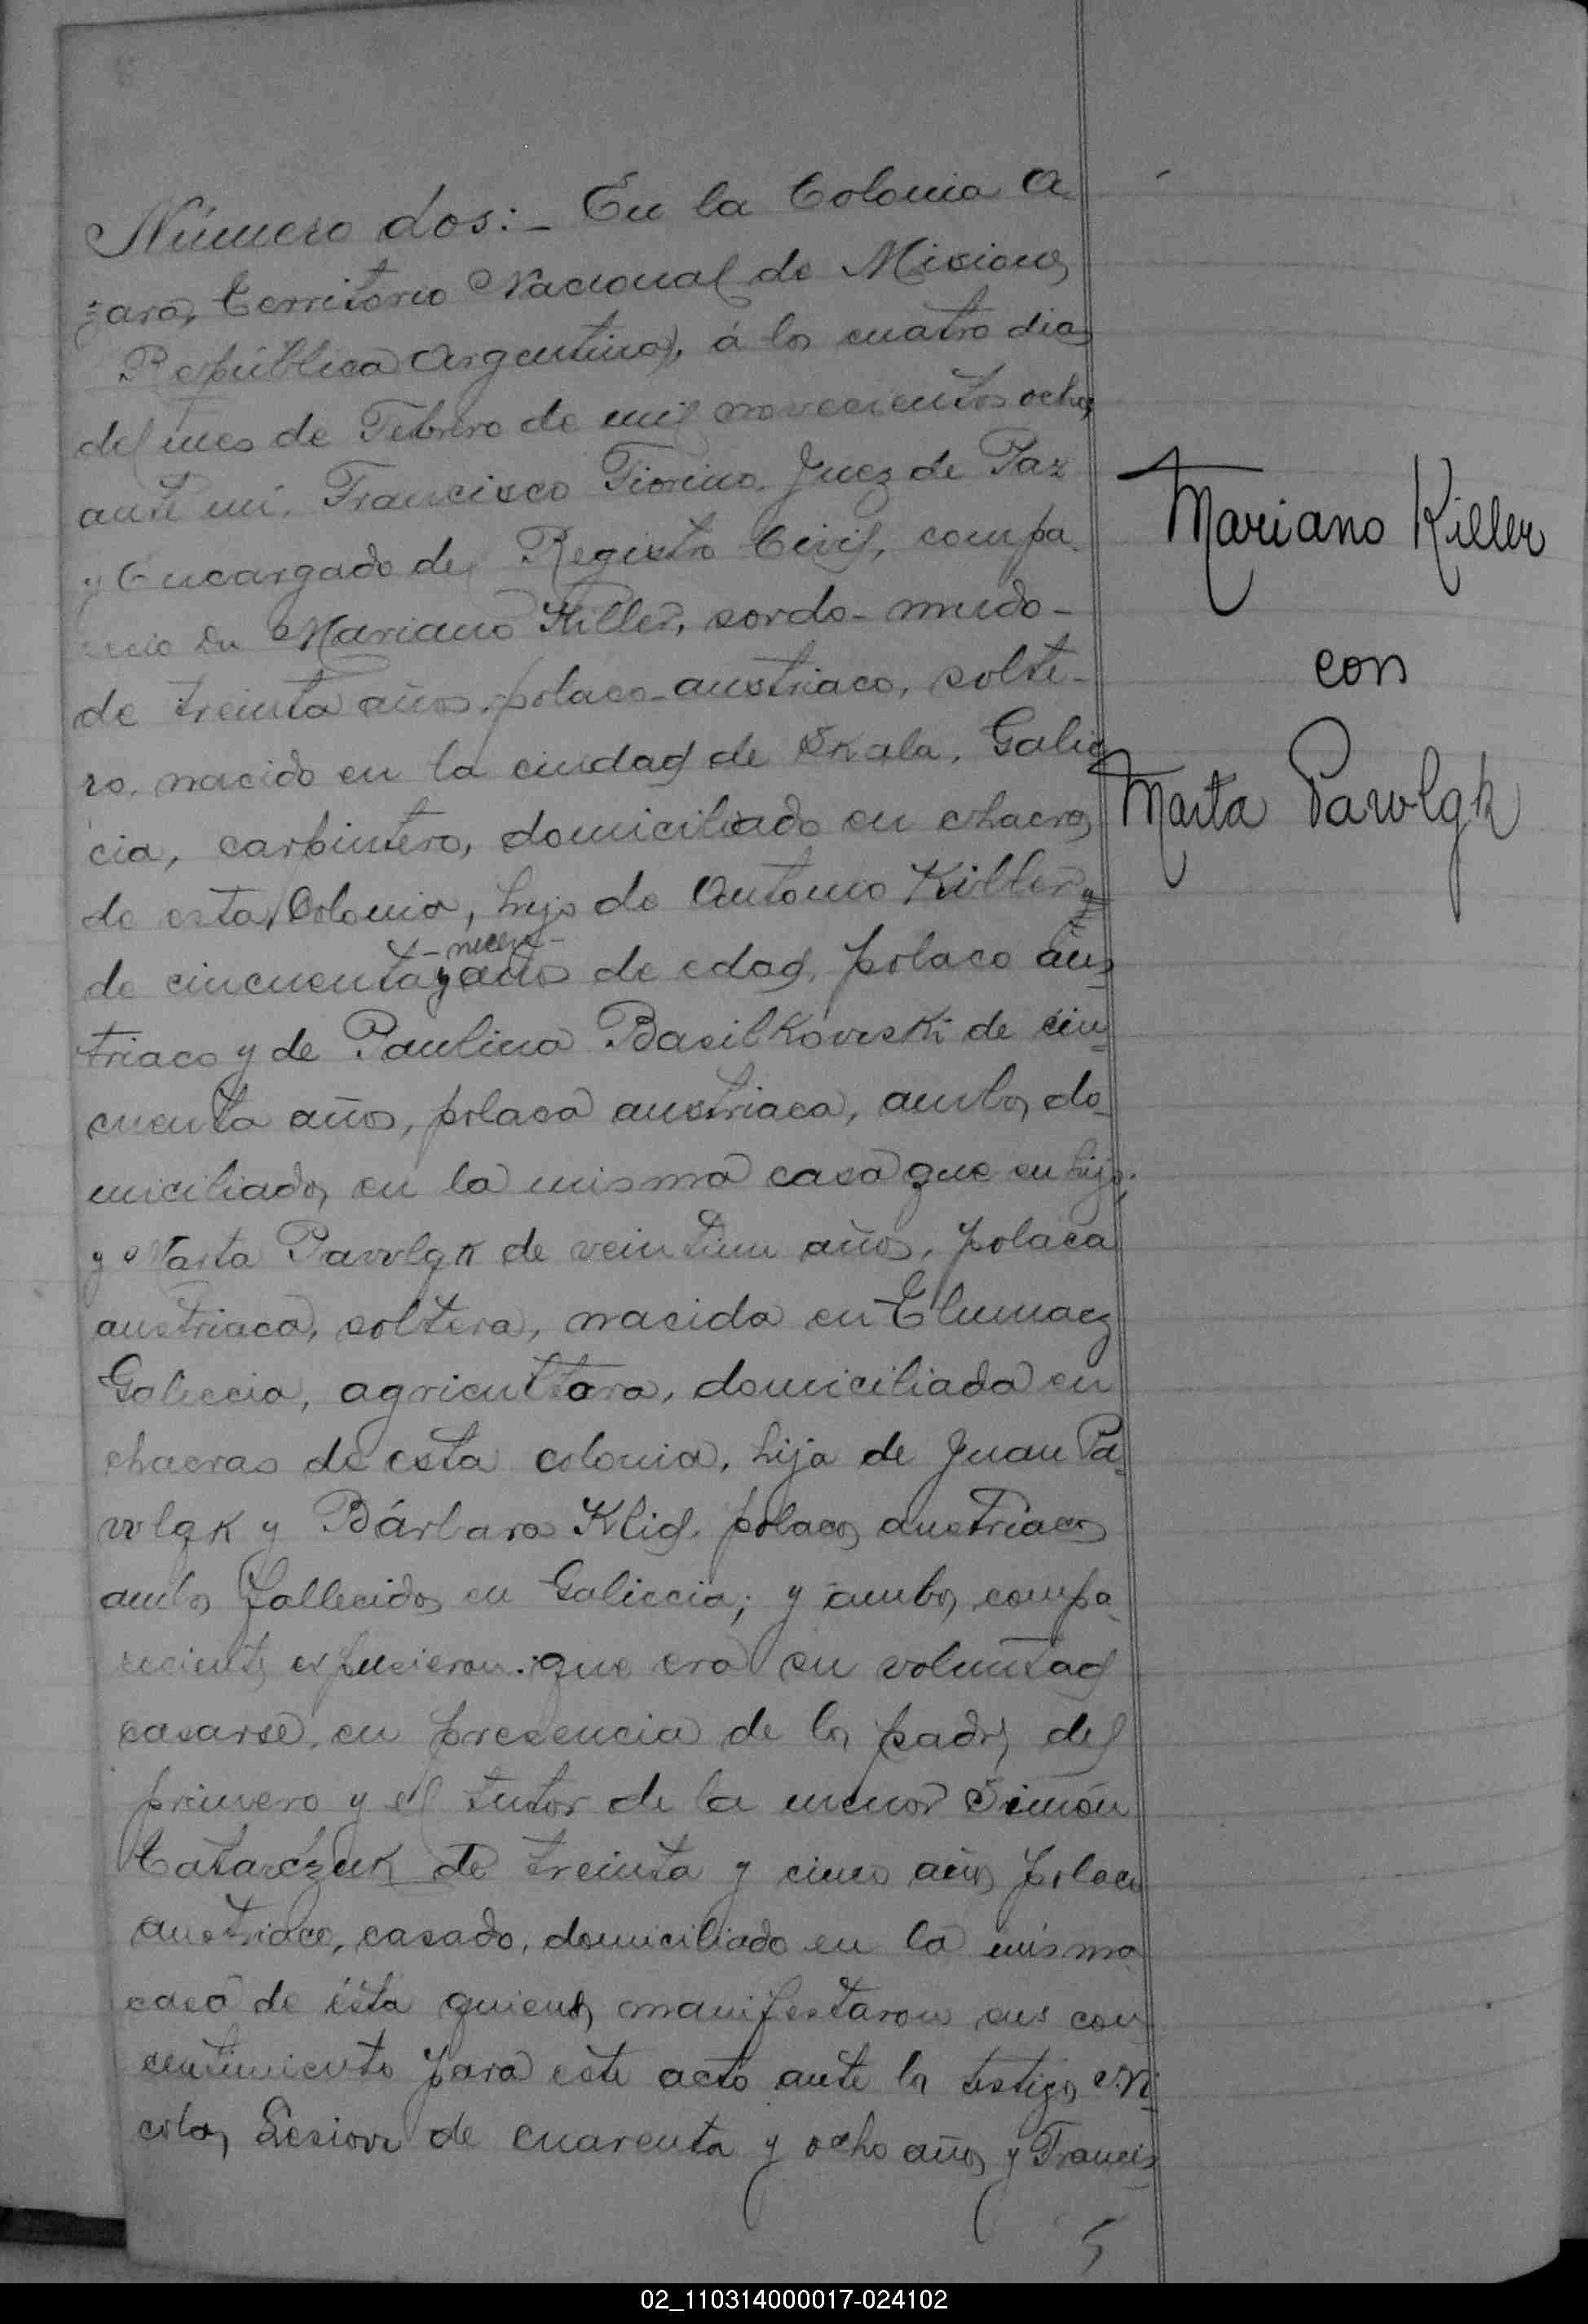 Número dos:- En la Colonia A
zara, Territorio Nacional de Misiones
República Argentina, á los cuatro dias
del mes de Febrero de mil novecientos ocho,
ante mí, Francisco Fiorino Juez de Paz
y Encargado del Registro Civil, compa
Mariano Killer, sordo-mudo-
de treinta años, polaco-austriaco, solte-
ro, nacido en la ciudad de Skala, Galic
cia, carpintero, domiciliado en chacras
de esta Colonia, hijo de Antonio Killer
- nueve -
de cincuenta y años de edad, polaco aus
triaco y de Paulina Basilkowski de cin
cuenta años, polaca austriaca, ambos do
miciliados en la misma casa que su hijo;
y Marta Pawlgk de veintiun años, polaca
austriaca, soltera, nacida en Tlumacz
Galiccia, agricultora, domiciliada en
chacras de esta colonia, hija de Juan Pa
wlgk y Bárbara Klid, polacos austriacos
ambos fallecidos en Galiccia; y ambos compa
recientes expusieron: que era su voluntad
casarse, en presencia de los padres del
primero y el tutor de la menor Simón
Tatarczuk de treinta y cinco años polaco
austriaco, casado, domiciliado en la misma
casa de ésta quienes manifestaron sus con
sentimiento para este acto ante los testigos Ni
colas de cuarenta y ocho años y Francis
Mariano Killer
con
Marta Pawlgk
02_110314000017-024102